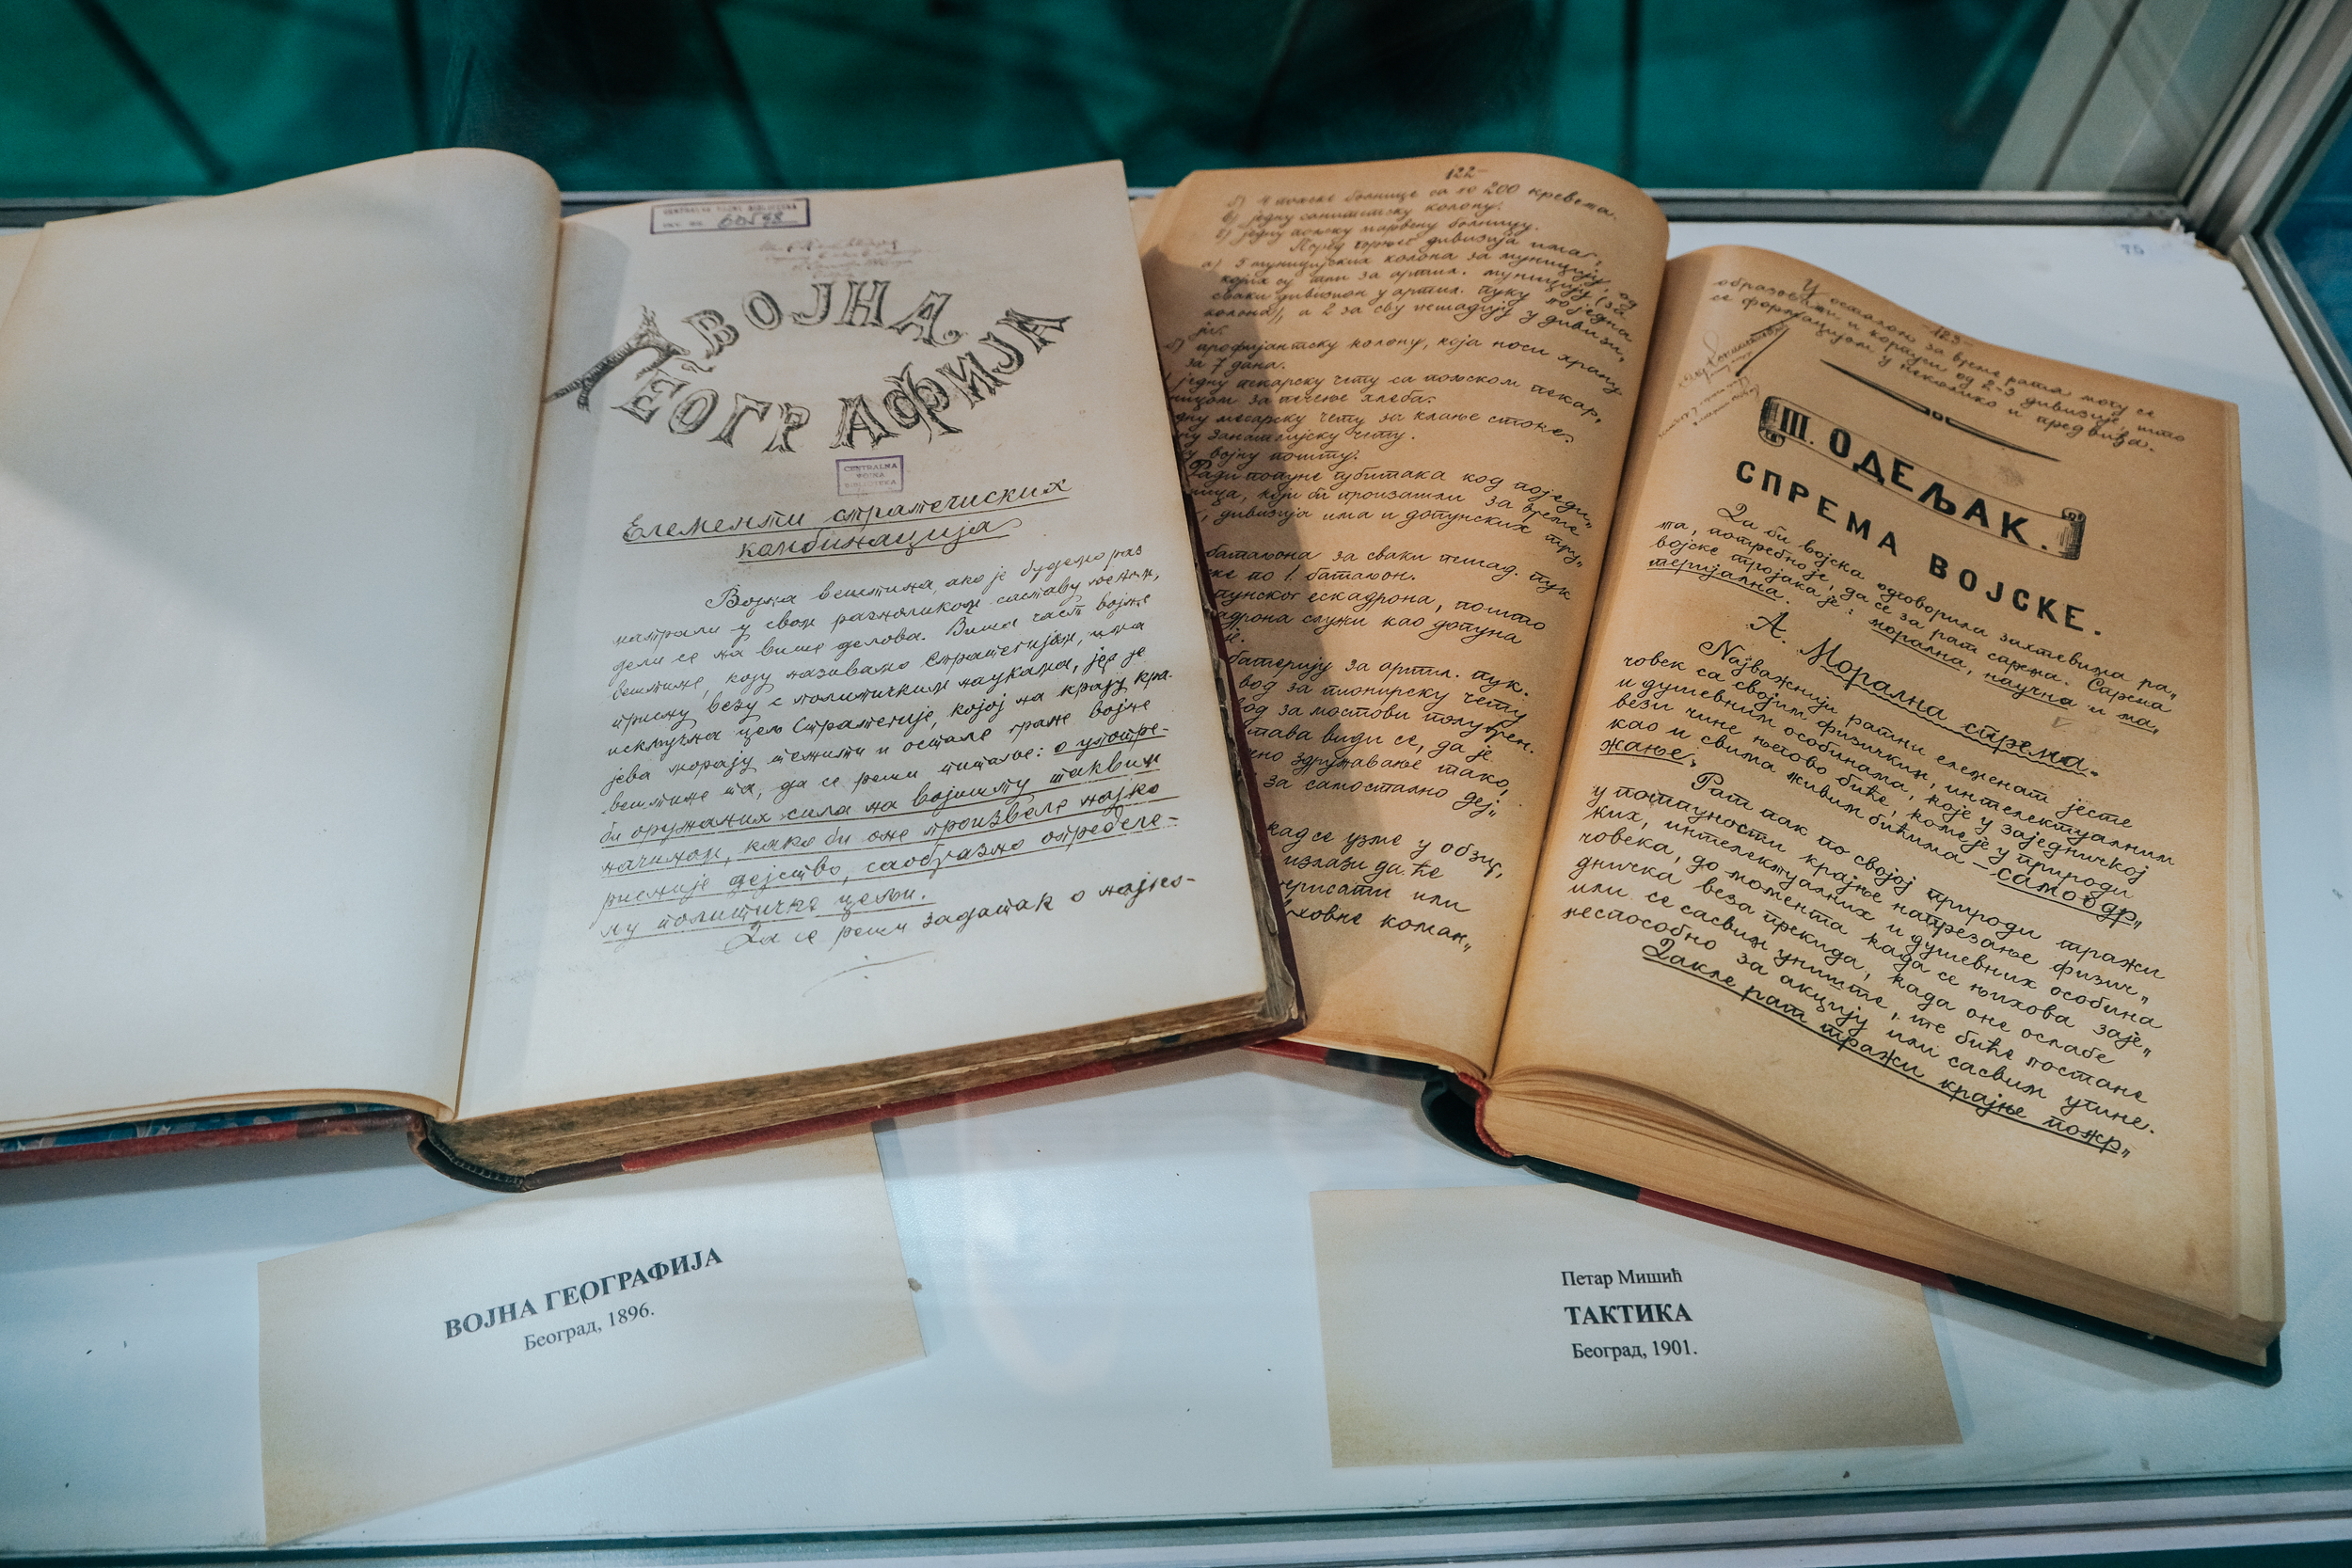 60598
ВОЈНА
ГЕОГРАФИЈА
CENTRALNA
VOJNA
BIBLIOTEKA
Елементи стратегиских
комбинација
Војна вештина, ако је будемо раз
матрали у свом разноликом саставу
дели се на више делова. Виши част војне
вештине, коју називамо Стратегијом, има
тјесну везу с политичким наукама, јер је
искључна цел Стратегије, којој на крају кра-
јева морају тежити и остале гране војне
вештине та, да се реши питање: о употре-
би оружаних сила на војишту таквим
начином, како би оне произвеле најко
рисније дејство, саобразно определе-
ну политичке цељи.
Да се реши задатак о најко-
122
б) 4 пољске болнице са по 200 кревета.
в) једну санитетску колону.
г) једну пољску марвену болницу.
Поред горњег дивизија има:
а) 5 муницијских колона за муницију, од
којих су три за артил. муницију (за
сваки дивизион у артил. пуку по једна
колона), а 2 за сву пешадију у дивизи„
ји.
б) профијантску колону, која носи храну
за 7 дана.
једну пекарску чету са пољском пекар„
ницом за печење хлеба.
дну месарску чету за клање стоке.
ну занатлијску чету.
у војну пошту.
Ради попуне губитака код поједи„
ница, који би произашли за време
, дивизија има и допунских тру„
батаљона за сваки пешад. пук
ке по 1. батаљон.
пунског ескадрона, пошто
адрона служи као допуна
је.
батерију за артил. пук.
вод за пионирску чету
вод за мостови полутрен.
става види се, да је
но здружавање тако,
за самостално деј„
кад се узме у обзир,
излази да ће
ерисати или
ховне коман„
123
У осталом за време рата могу се
образовати и корпуси од 2-3 дивизије, што
се формацијом у неколико и предвиђа.
III. ОДЕЉАК.
СПРЕМА ВОЈСКЕ.
Да би војска одговорила захтевима ра„
та, потребно је, да се за рат спрема. Спрема
војске тројака је: морална, научна и ма„
теријална.
А. Морална спрема.
Најважнији ратни елеменат јесте
човек са својим физичким, интелектуалним
и душевним особинама, које у заједничкој
вези чине његово биће, коме је у природи
као и свима живим бићима – самоодр„
жање;
Рат пак по својој природи тражи
у потпуности крајње напрезање физич„
ких, интелектуалних и душевних особина
човека, до момента када се њихова заје„
дничка веза прекида, када оне ослабе
или се сасвим униште, те биће постане
неспособно за акцију или сасвим угине.
Дакле рат тражи крајње пожр„
ВОЈНА ГЕОГРАФИЈА
Београд, 1896.
Петар Мишић
ТАКТИКА
Београд, 1901.
75